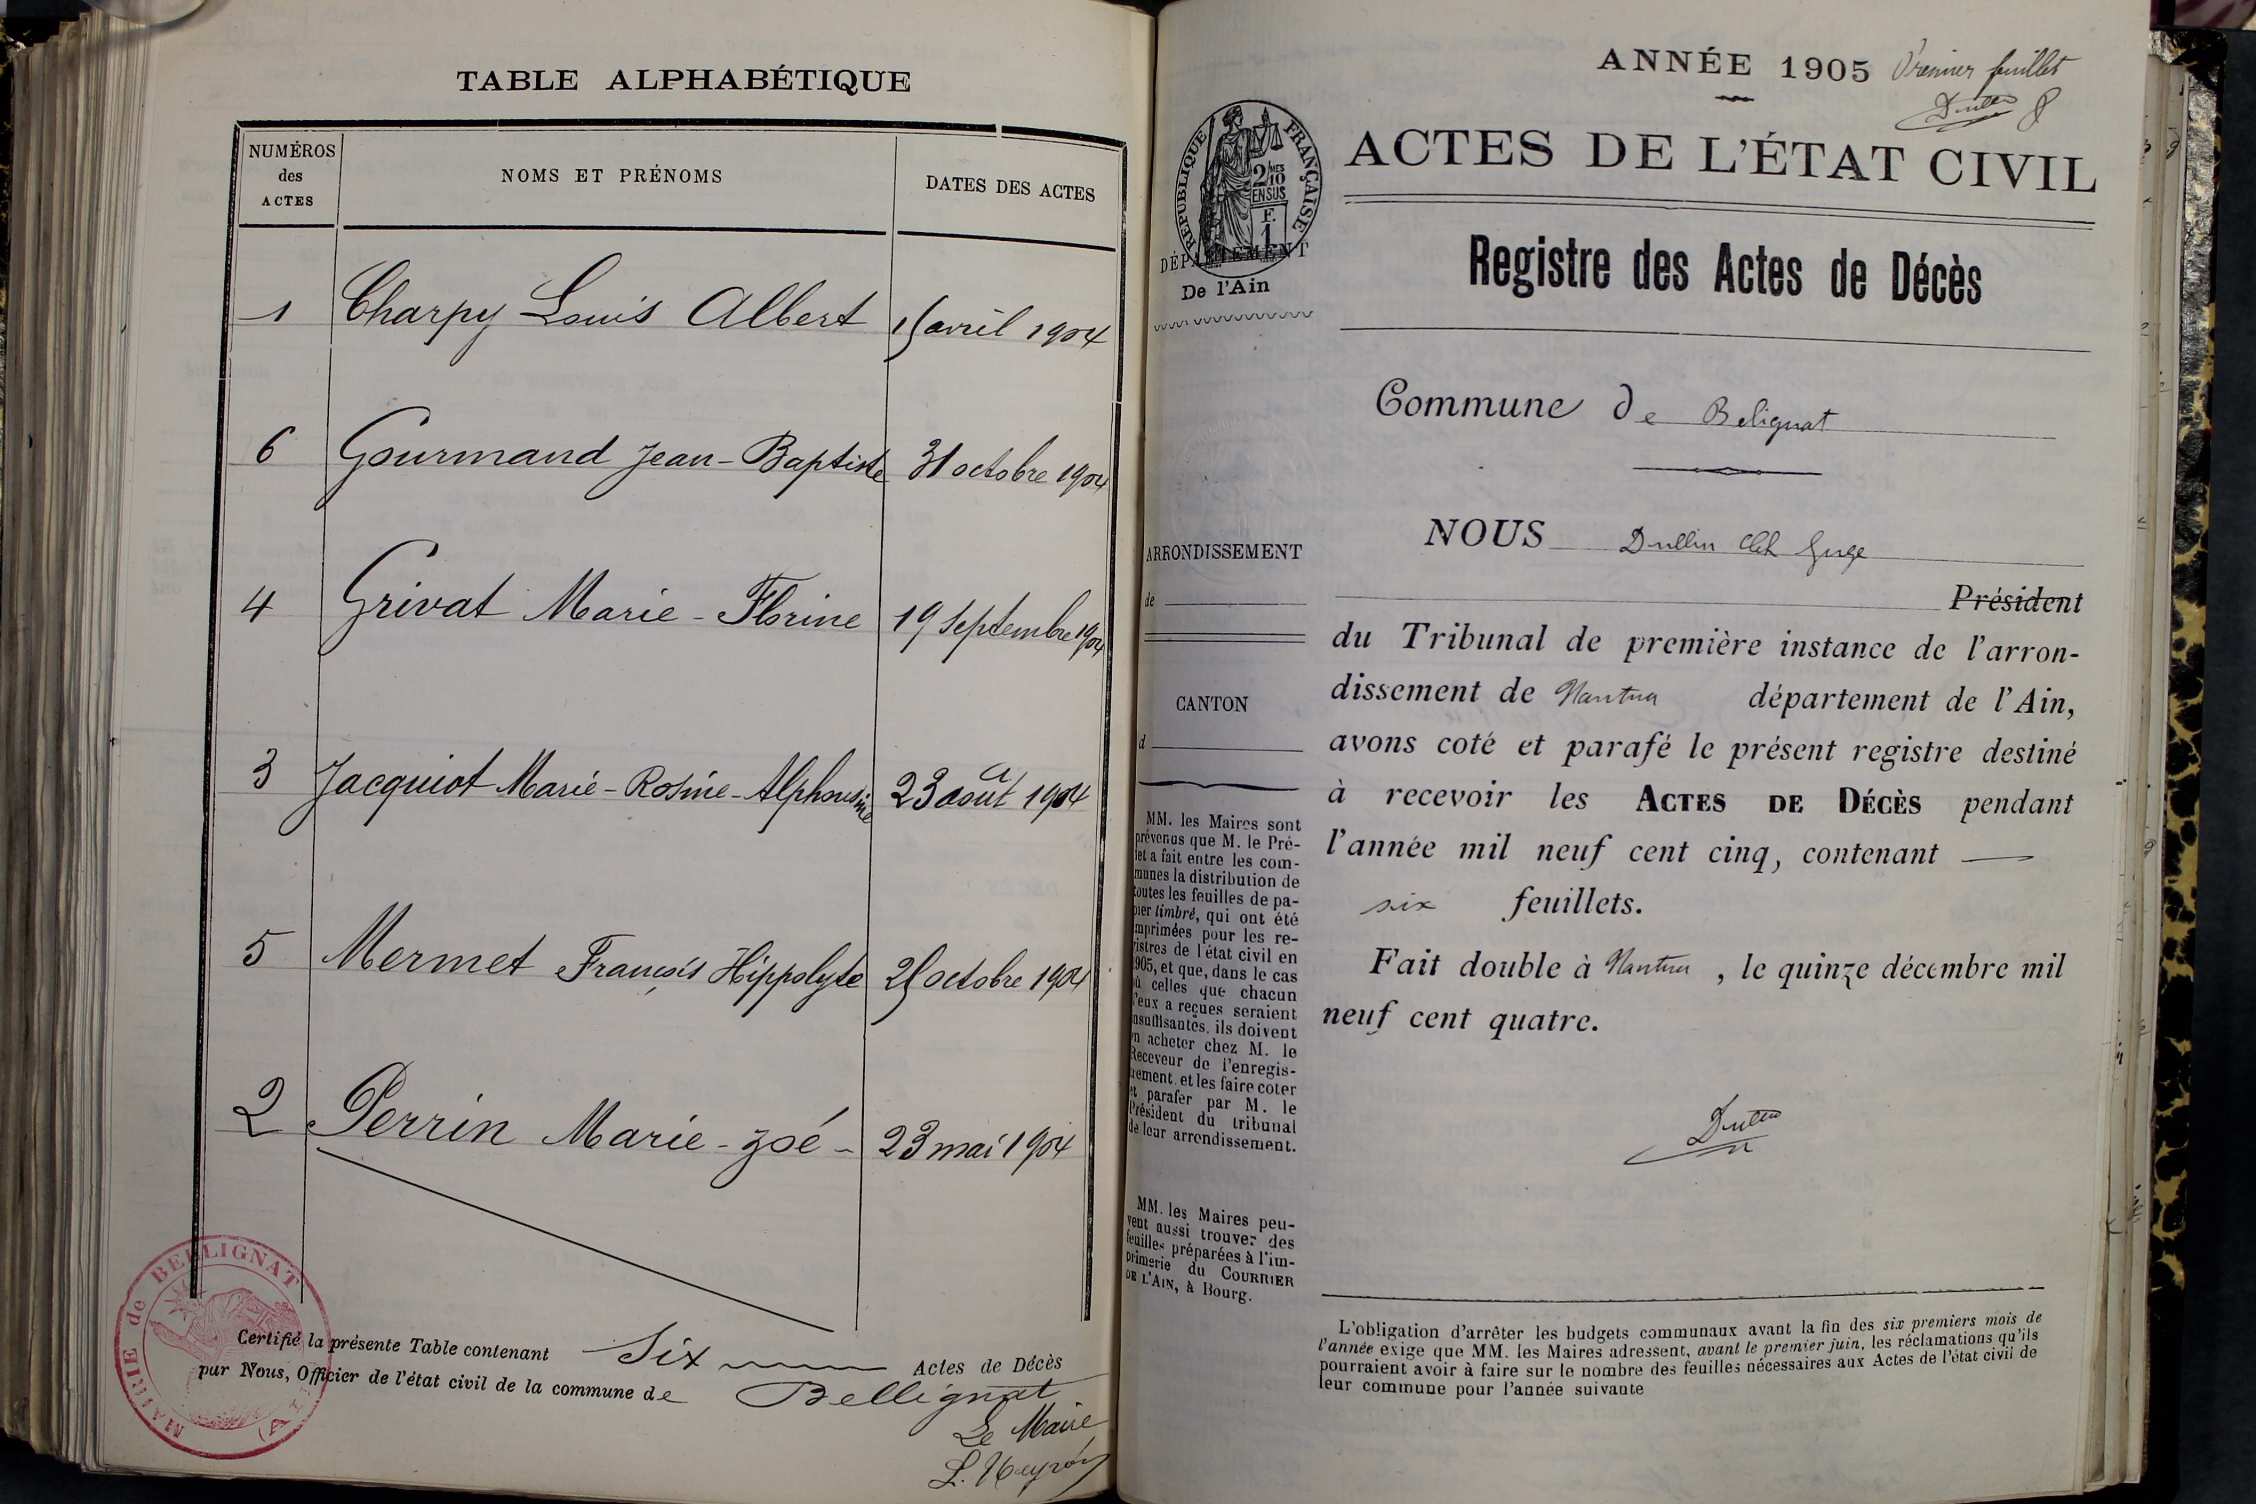 TABLE ALPHABÉTIQUE
NUMÉROS
des
ACTES
NOMS ET PRÉNOMS
DATES DES ACTES
1 Charpy Louis Albert 15 avril 1904
6 Gourmand Jean-Baptiste 31 octobre 1904
4 Grivat Marie-Florine 19 septembre 1904
3 Jacquiot Marie-Rosine-Alphonsine 23 août 1904
5 Mermet François Hippolyte 25 octobre 1904
2 Perrin Marie-Zoé - 23 mai 1904
MAIRIE de BELLIGNAT
Certifié la présente Table contenant Six Actes de Décès
par Nous, Officier de l'état civil de la commune de Bellignat
Le Maire
ANNÉE 1905 Premier feuillet
ACTES DE L'ÉTAT CIVIL
RÉPUBLIQUE FRANÇAISE
2/10 MES
EN SUS
F.
1
DÉPARTEMENT
De l'Ain
Registre des Actes de Décès
Commune de Belignat
NOUS Dullin
Président
du Tribunal de première instance de l'arron-
dissement de Nantua département de l'Ain,
avons coté et parafé le présent registre destiné
à recevoir les ACTES DE DÉCÈS pendant
l'année mil neuf cent cinq, contenant —
six feuillets.
Fait double à Nantua, le quinze décembre mil
neuf cent quatre.
ARRONDISSEMENT
de
CANTON
d
MM. les Maires sont
prévenus que M. le Pré-
fet a fait entre les com-
munes la distribution de
toutes les feuilles de pa-
pier timbré, qui ont été
imprimées pour les re-
gistres de l'état civil en
1905, et que, dans le cas
où celles que chacun
d'eux a reçues seraient
insuffisantes, ils doivent
en acheter chez M. le
Receveur de l'enregis-
trement et les faire coter
et parafer par M. le
Président du tribunal
de leur arrondissement.
MM. les Maires peu-
vent aussi trouver des
feuilles préparées à l'im-
primerie du COURRIER
DE L'AIN, à Bourg.
L'obligation d'arrêter les budgets communaux avant la fin des six premiers mois de
l'année exige que MM. les Maires adressent, avant le premier juin, les réclamations qu'ils
pourraient avoir à faire sur le nombre des feuilles nécessaires aux Actes de l'état civil de
leur commune pour l'année suivante